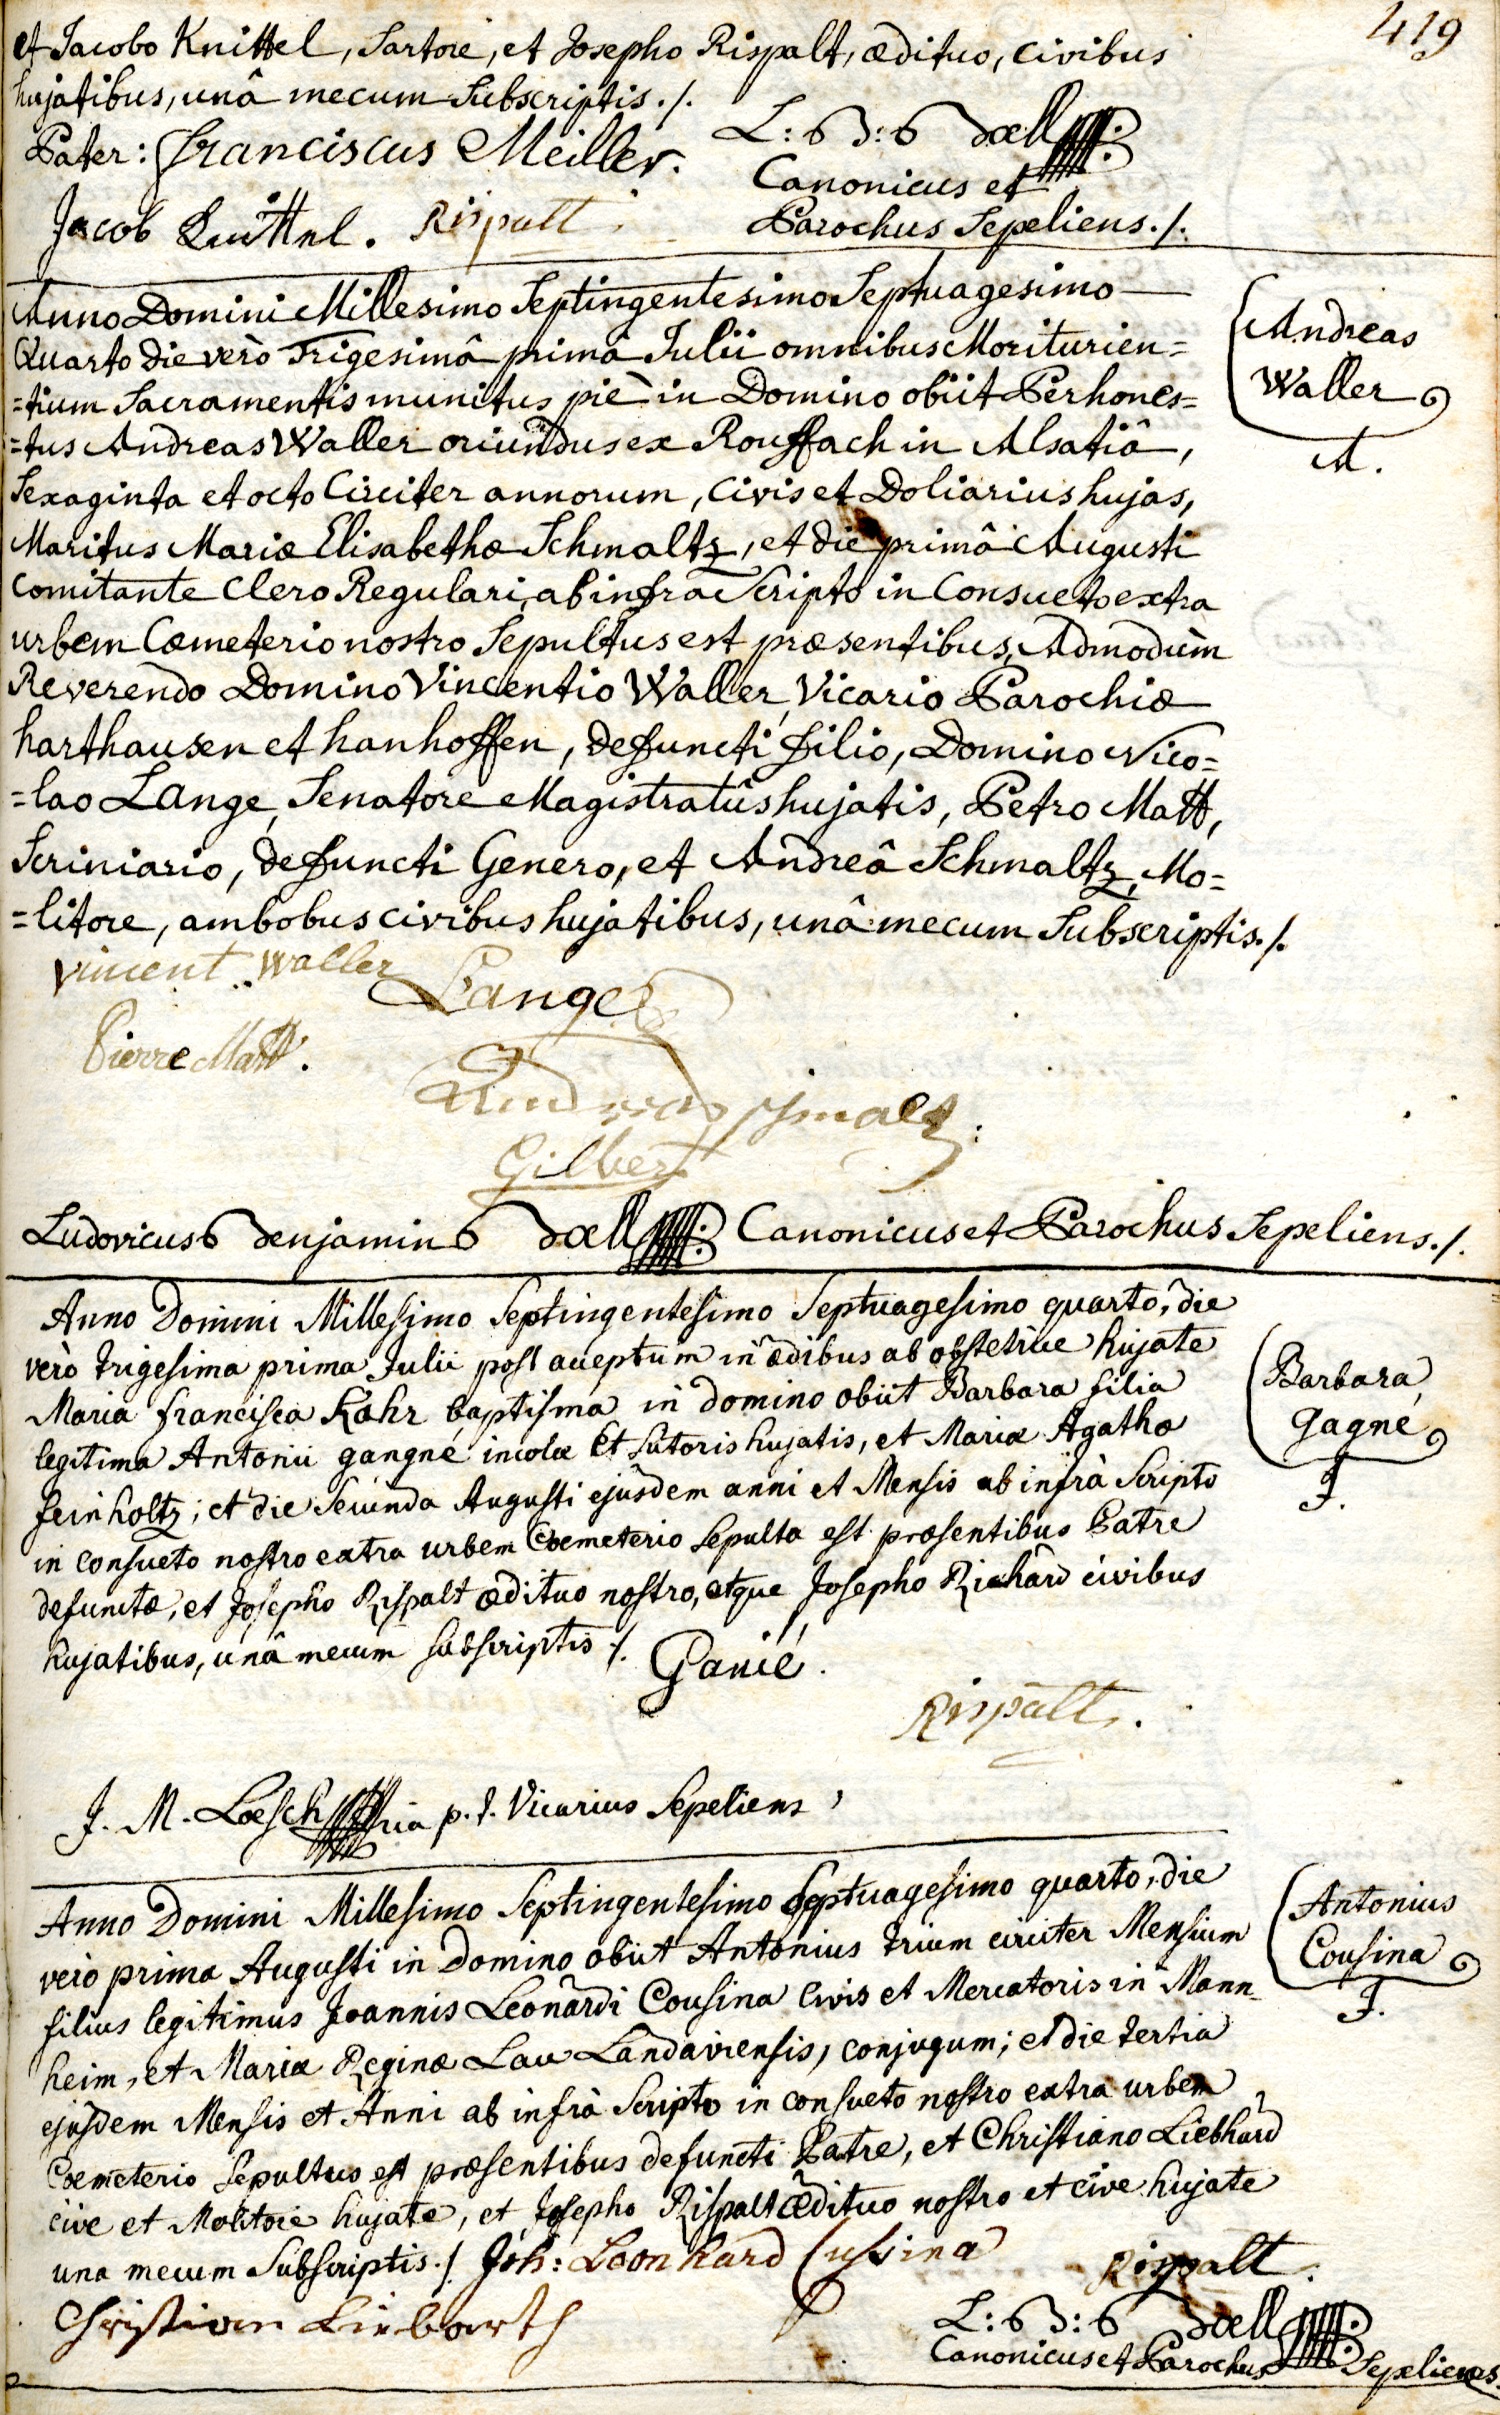 419
et Jacobo Knittel, Sartore, et Josepho Rispalt, ædituo, Civibus
hujatibus, unâ mecum Subscriptis ./.
Pater: franciscus Meiller.
L: B: Doell
Canonicus et
Jacob Knittel. Rispalt
Parochus Sepeliens ./.
Anno Domini Millesimo Septingentesimo Septuagesimo
Quarto die verò Trigesimâ primâ Julii omnibus Moriturien=
=tium Sacramentis munitus piè in Domino obiit Perhones=
=tus Andreas Waller oriundus ex Rouffach in Alsatiâ,
Sexaginta et octo Circiter annorum, Civis et Doliarius hujas,
Maritus Mariæ Elisabethæ Schmaltz, et die primâ Augusti
Comitante Clero Regulari, ab infra Scripto in Consueto extra
urbem Cœmeterio nostro Sepultus est præsentibus, Admodùm
Reverendo Domino Vincentio Waller, Vicario Parochiæ
harthausen et hanhoffen, defuncti filio, Domino Nico=
=lao Lange, Senatore Magistratûs hujatis, Petro Matt,
Scriniario, defuncti Genero, et Andreâ Schmaltz, Mo=
=litore, ambobus civibus hujatibus, unâ mecum Subscriptis ./.
Andreas
Waller
A.
Vincent Waller
Lange
Pierre Matt.
Andreas schmalz:
Gilbert
Ludovicus Benjamin Doell Canonicus et Parochus Sepeliens ./.
Anno Domini Millesimo Septingentesimo Septuagesimo quarto, die
verò trigesima prima Julii post acceptum in ædibus ab obstetrice hujate
Maria francisca Kahr baptisma in domino obiit Barbara filia
legitima Antonii gangné incolæ et Sutoris hujatis, et Mariæ Agathæ
feinholtz; et die Secunda Augusti ejusdem anni et Mensis ab infrà Scripto
in consueto nostro extra urbem Cœmeterio Sepulta est præsentibus Patre
defunctæ, et Josepho Rispalt ædituo nostro, atque Josepho Richard civibus
hujatibus, unâ mecum subscriptis ./. Ganié.
Barbara
Gagné
J.
Rispalt.
J. M. Loesch p. t. Vicarius Sepeliens
Anno Domini Millesimo Septingentesimo Septuagesimo quarto, die
verò prima Augusti in Domino obiit Antonius trium circiter Mensium
filius legitimus Joannis Leonardi Cousina Civis et Mercatoris in Mann-
heim, et Mariæ Reginæ Lau Landaviensis, conjugum; et die tertia
ejusdem Mensis et Anni ab infrà Scripto in consueto nostro extra urbem
Cœmeterio Sepultus est præsentibus defuncti Patre, et Christiano Liebhard
cive et Molitore hujate, et Josepho Rispalt Ædituo nostro et cive hujate
una mecum Subscriptis ./. Joh: Leonhard Cussina
Antonius
Cousina
J.
Rispalt.
Christian Liebarth
L: B: Doell
Canonicus et Parochus Sepeliens.